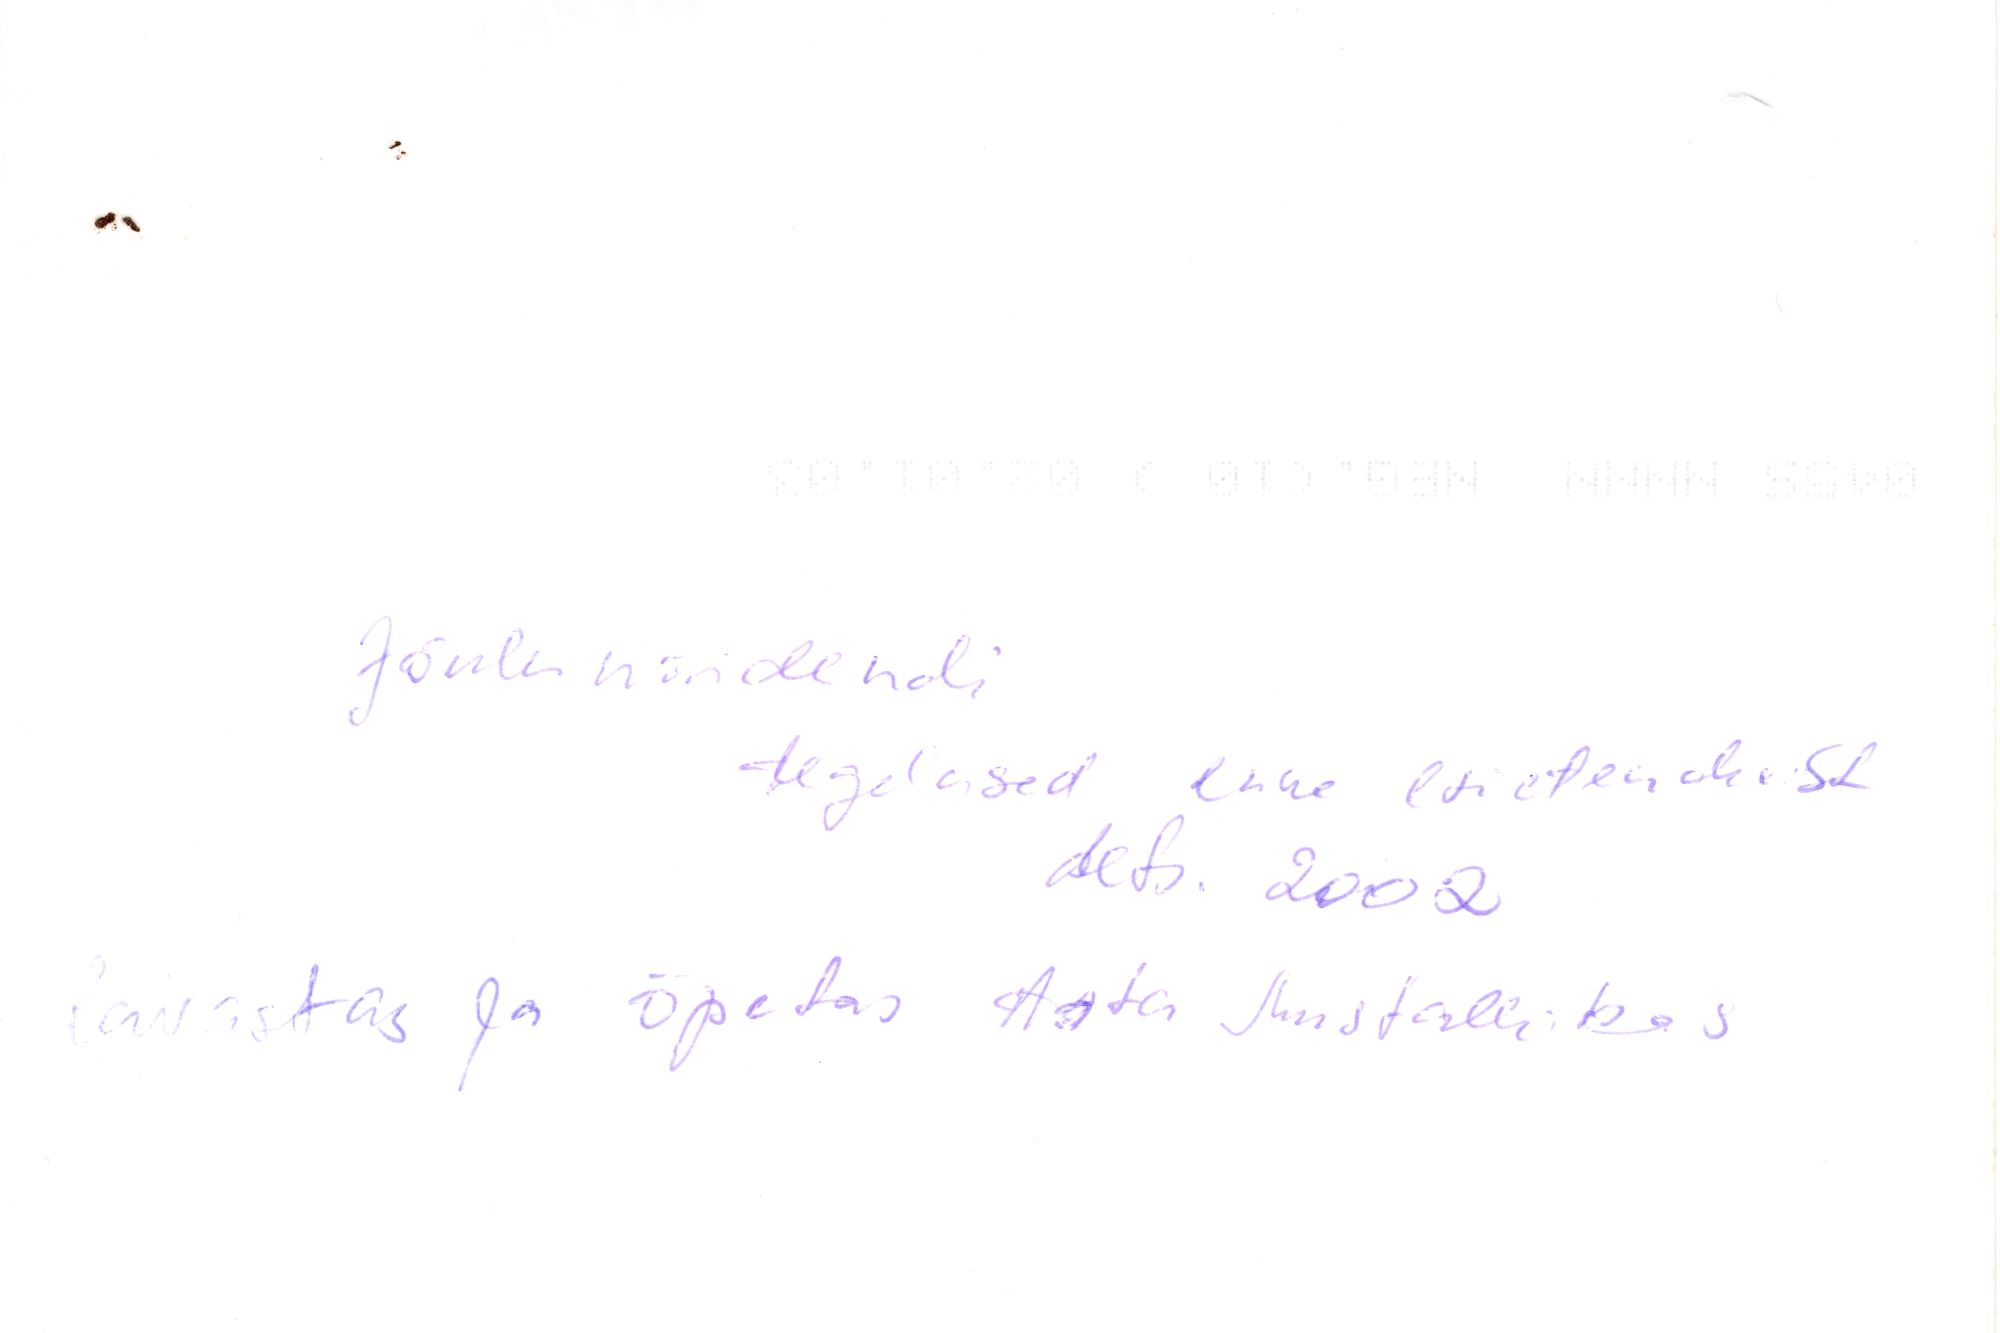 0455 NNNN NEG.(10 ) 02.01.03
Jõulunäidendi
tegelased enne esietendust
dets. 2002
Lavastas ja õpetas Asta Mustallikas